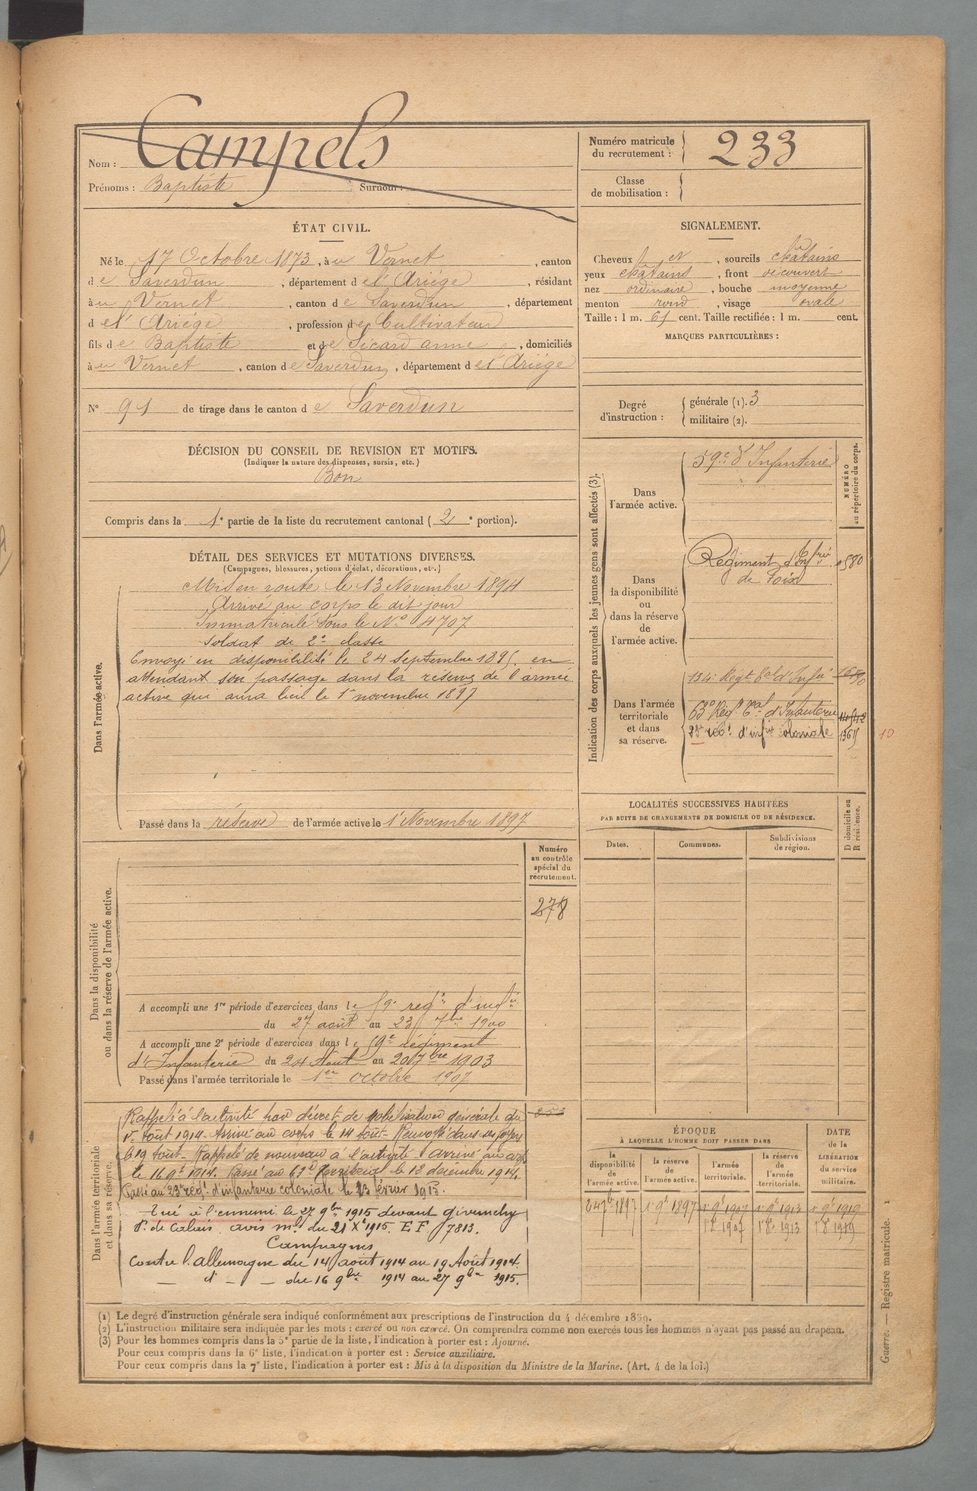 Nom : Campels
Prénoms : Baptiste Surnom :
Numéro matricule du recrutement : 233
Classe de mobilisation :
ÉTAT CIVIL.
Né le 17 Octobre 1873, à u Vernet, canton
d e Saverdun, département d e l'Ariége, résidant
à u Vernet, canton d e Saverdun, département
d e l'Ariége, profession d e Cultivateur
fils d e Baptiste et d e Sicard anne, domiciliés
à u Vernet, canton d e Saverdun, département d e l'Ariége
N° 91 de tirage dans le canton d e Saverdun
SIGNALEMENT.
Cheveux et, sourcils châtains
yeux châtains, front découvert
nez ordinaire, bouche moyenne
menton rond, visage ovale
Taille : 1 m. 61 cent. Taille rectifiée : 1 m. cent.
MARQUES PARTICULIÈRES :
Degré d'instruction : générale (1). 3
militaire (2).
DÉCISION DU CONSEIL DE REVISION ET MOTIFS.
(Indiquer la nature des dispenses, sursis, etc.)
Bon
Compris dans la 1e partie de la liste du recrutement cantonal ( 2e portion).
DÉTAIL DES SERVICES ET MUTATIONS DIVERSES.
(Campagnes, blessures, actions d'éclat, décorations, etc.)
Dans l'armée active.
Mis en route le 13 Novembre 1894
Arrivé au corps le dit jour
Immatriculé sous le N° 4707
Soldat de 2e classe
Envoyé en disponibilité le 24 septembre 1895, en
attendant son passage dans la réserve de l'armée
active qui aura lieu le 1er novembre 1897
Passé dans la réserve de l'armée active le 1er Novembre 1897
Indication des corps auxquels les jeunes gens sont affectés (3).
NUMÉRO au répertoire du corps.
Dans l'armée active.
59e d'Infanterie
Dans la disponibilité ou dans la réserve de l'armée active.
Régiment d'Infrie
de Foix
Dans l'armée territoriale et dans sa réserve.
134e Régt tal d'Infie
63e Regt tal d'Infanterie
23e régt d'infie coloniale
10
LOCALITÉS SUCCESSIVES HABITÉES
PAR SUITE DE CHANGEMENTS DE DOMICILE OU DE RÉSIDENCE.
Dates. Communes. Subdivisions de région.
D domicile ou R résidence.
Numéro au contrôle spécial du recrutement.
278
Dans la disponibilité ou dans la réserve de l'armée active.
A accompli une 1re période d'exercices dans l e 59e regt d'infie
du 27 août au 23 7bre 1900
A accompli une 2e période d'exercices dans l e 59e régiment
d'Infanterie du 24 Aout au 20 7bre 1903
Passé dans l'armée territoriale le 1er octobre 1907
Dans l'armée territoriale et dans sa réserve.
Rappelé à l'activité par décret de mobilisation générale du
1er Août 1914. Arrivé au corps le 14 août. Renvoyé dans ses foyers
le 19 août. Rappelé de nouveau à l'activité. Arrivé au corps
le 16 9bre 1914. Passé au 63e territorial le 13 décembre 1914.
Passé au 23e régt d'infanterie coloniale le 23 février 1915.
Tué à l'ennemi le 27 9bre 1915 devant Givenchy
P. de Calais. avis ml du 21 Xbre 1915. E F 7813.
Campagnes
Contre l'allemagne du 14 août 1914 au 19 Août 1914.
— d° — du 16 9bre 1914 au 27 9bre 1915.
ÉPOQUE
À LAQUELLE L'HOMME DOIT PASSER DANS
la disponibilité de l'armée active.
la réserve de l'armée active.
l'armée territoriale.
la réserve de l'armée territoriale.
DATE de la LIBÉRATION du service militaire.
(1) Le degré d'instruction générale sera indiqué conformément aux prescriptions de l'instruction du 4 décembre 1889.
(2) L'instruction militaire sera indiquée par les mots : exercé ou non exercé. On comprendra comme non exercés tous les hommes n'ayant pas passé au drapeau.
(3) Pour les hommes compris dans la 5e partie de la liste, l'indication à porter est : Ajourné.
Pour ceux compris dans la 6e liste, l'indication à porter est : Service auxiliaire.
Pour ceux compris dans la 7e liste, l'indication à porter est : Mis à la disposition du Ministre de la Marine. (Art. 4 de la loi.)
Guerre. — Registre matricule. 1